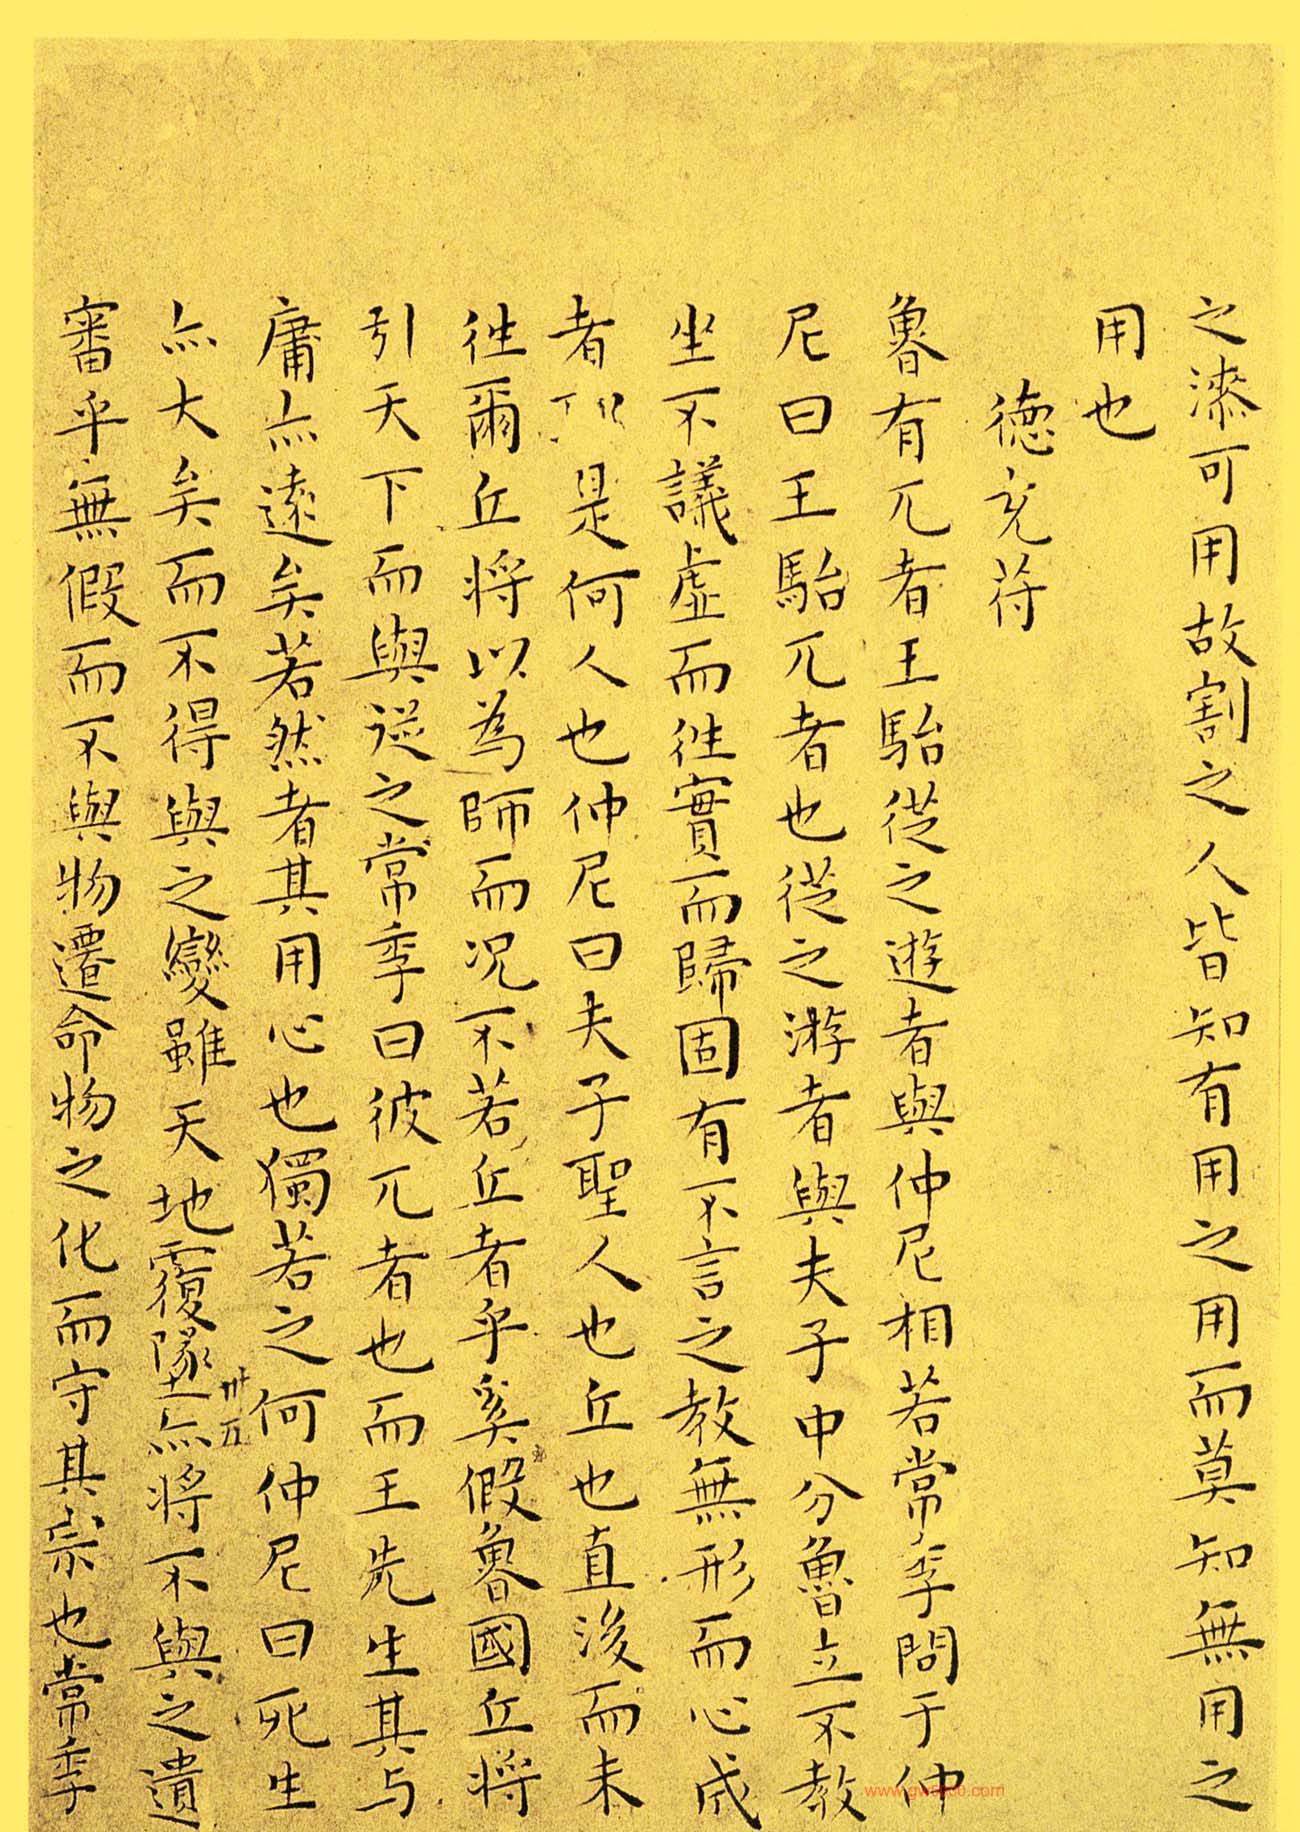 之漆可用故割之人皆知有用之用而莫知無用之
用也
德充符
魯有兀者王駘從之遊者與仲尼相若常季問于仲
尼曰王駘兀者也從之游者與夫子中分魯立不教
坐不議虛而往實而歸固有不言之教無形而心成
者是何人也仲尼曰夫子聖人也丘也直後而未
往爾丘將以為師而況不若丘者乎奚假魯國丘將
引天下而與從之常季曰彼兀者也而王先生其与
庸亦遠矣若然者其用心也獨若之何仲尼曰死生
亦大矣而不得與之變雖天地覆墜亦將不與之遺
卅五
審乎無假而不與物遷命物之化而守其宗也常季